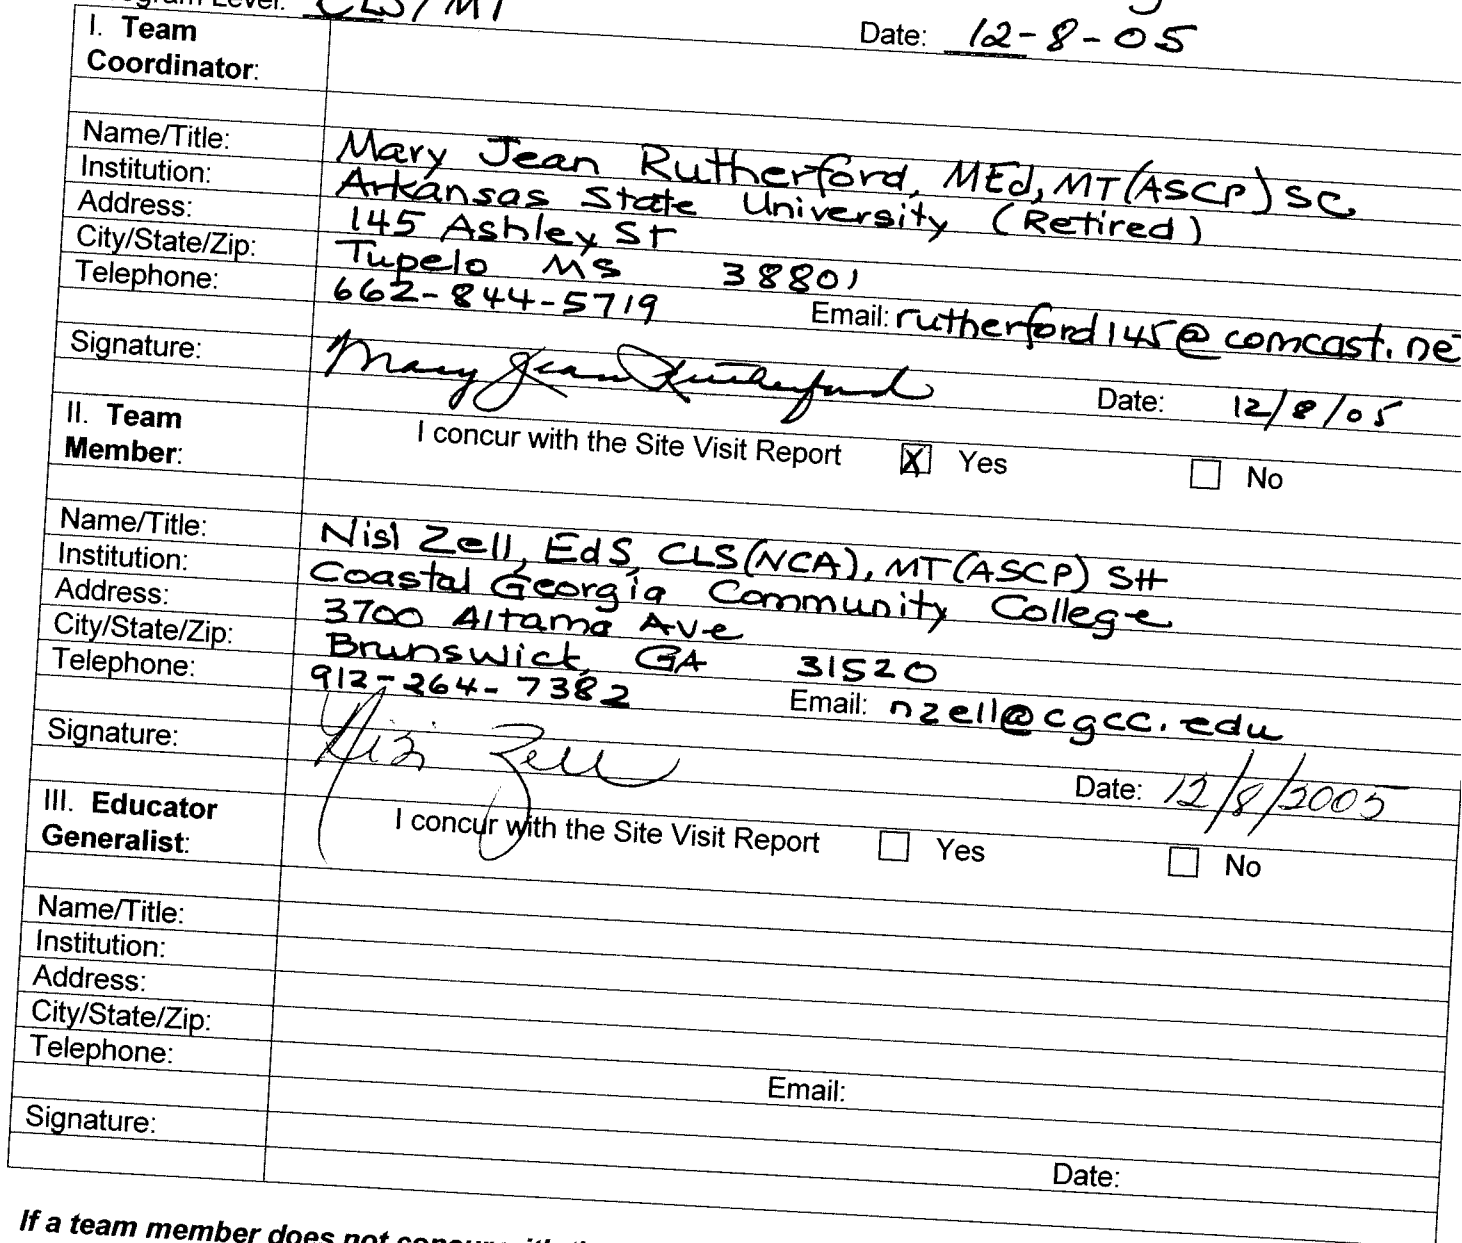 Level: CLS/MT
Date: 12-8-05
I. Team
Coordinator:
Name/Title: Mary Jean Rutherford, MEd, MT(ASCP)SC
Institution: Arkansas State University (Retired)
Address: 145 Ashley St
City/State/Zip: Tupelo MS 38801
Telephone: 662-844-5719 Email: rutherford145@comcast.ne
Signature: Mary Jean Rutherford Date: 12/8/05
II. Team
Member: I concur with the Site Visit Report X Yes No
Name/Title: Nisl Zell, EdS, CLS(NCA), MT(ASCP) SH
Institution: Coastal Georgia Community College
Address: 3700 Altama Ave
City/State/Zip: Brunswick, GA 31520
Telephone: 912-264-7382 Email: nzell@cgcc.edu
Signature: Zell Date: 12/8/2005
III. Educator
Generalist: I concur with the Site Visit Report Yes No
Name/Title:
Institution:
Address:
City/State/Zip:
Telephone:
Email:
Signature:
Date:
If a team member does not concur